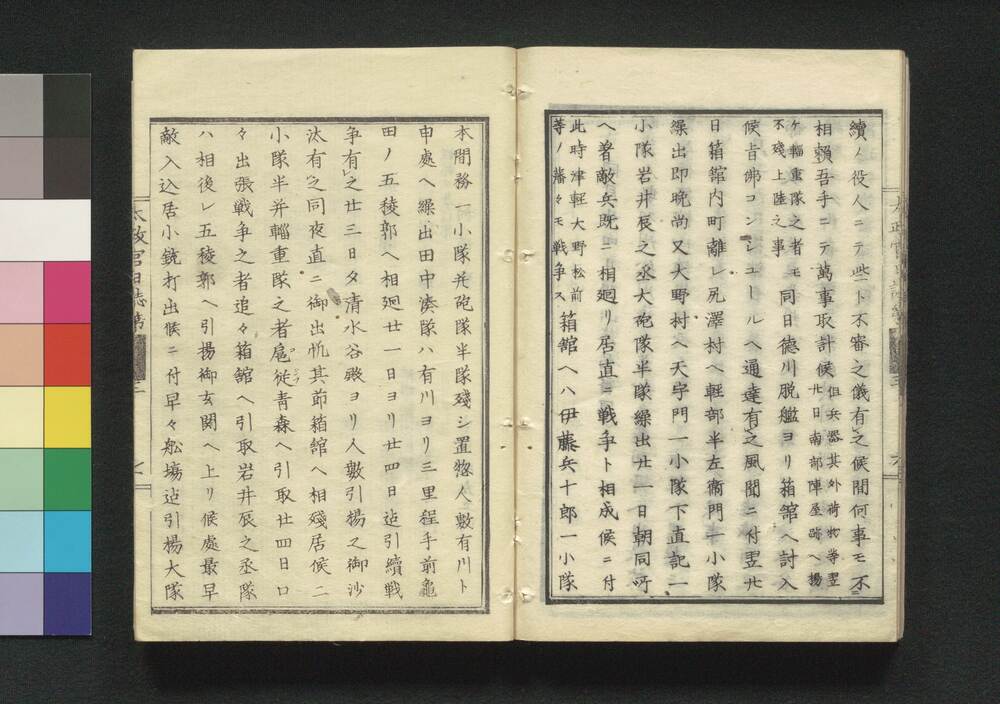 續ノ役人ニテ些ト不審之儀有之候間何事モ不
相頼吾手ニテ萬事取計候但兵器其外荷物等翌
廿日南部陣屋跡ヘ揚
ケ輜重隊之者モ
不殘上陸之事
同日徳川脱艦ヨリ箱舘ヘ討入
候旨佛コンシユールヘ通達有之風聞ニ付翌廿
日箱舘内町離レ尻澤村ヘ軽部半左衞門一小隊
繰出即晩尚又大野村ヘ天宇門一小隊下直記一
小隊岩井辰之丞大砲隊半隊繰出廿一日朝同所
ヘ着敵兵既ニ相廻リ居直ニ戦争ト相成候ニ付
此時津軽大野松前
等ノ藩々モ戦争ス
箱舘ヘハ伊藤兵十郎一小隊
本間務一小隊并砲隊半隊殘シ置惣人數有川ト
申處ヘ繰出田中湊隊ハ有川ヨリ三里程手前龜
田ノ五稜郭ヘ相廻廿一日ヨリ廿四日迠引續戦
争有之廿三日夕清水谷殿ヨリ人數引揚之御沙
汰有之同夜直ニ御出帆其節箱舘ヘ相殘居候二
小隊半并輜重隊之者扈従青森ヘ引取廿四日口
々出張戦争之者追々箱舘ヘ引取岩井辰之丞隊
ハ相後レ五稜郭ヘ引揚御玄関ヘ上リ候處最早
敵入込居小銃打出候ニ付早々舩塲迠引揚大隊
太政官日誌第